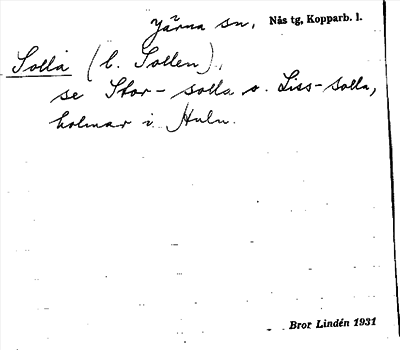 Järna sn. Nås tg, Kopparb. l.
Solla (b. Sollen),
se Stor-solla o. Liss-solla,
holmar i Huln.
Bror Lindén 1931